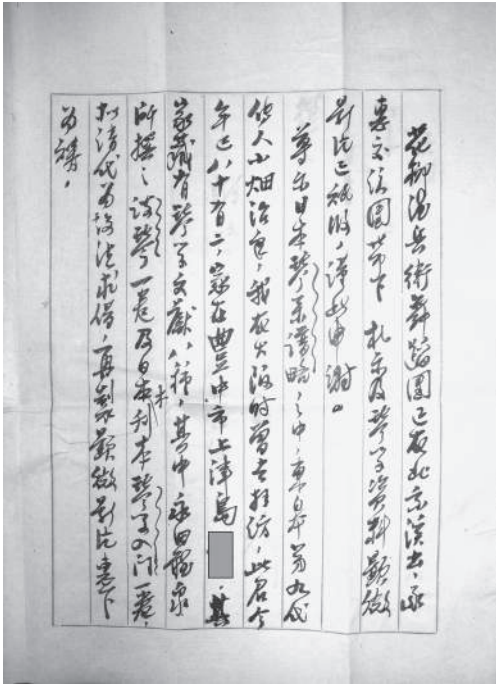 花柳徳兵衛舞踊團已在北京演出，承
惠交該團帶下 札示及琴学資料顯微
影片已祗收，謹此申謝。
尊示日本琴系譜略之中，東日本第九代
傳人小畑治重，我在大阪時曾去拜訪，此君今
年已八十有二，寓在豊中市上津島 ，其
家藏有琴学文獻八種，其中永田聽泉
所撰之談琴一卷及日本刊本琴学入门一卷，
擬請代為設法求借，再製成顯微影片惠下
為禱，